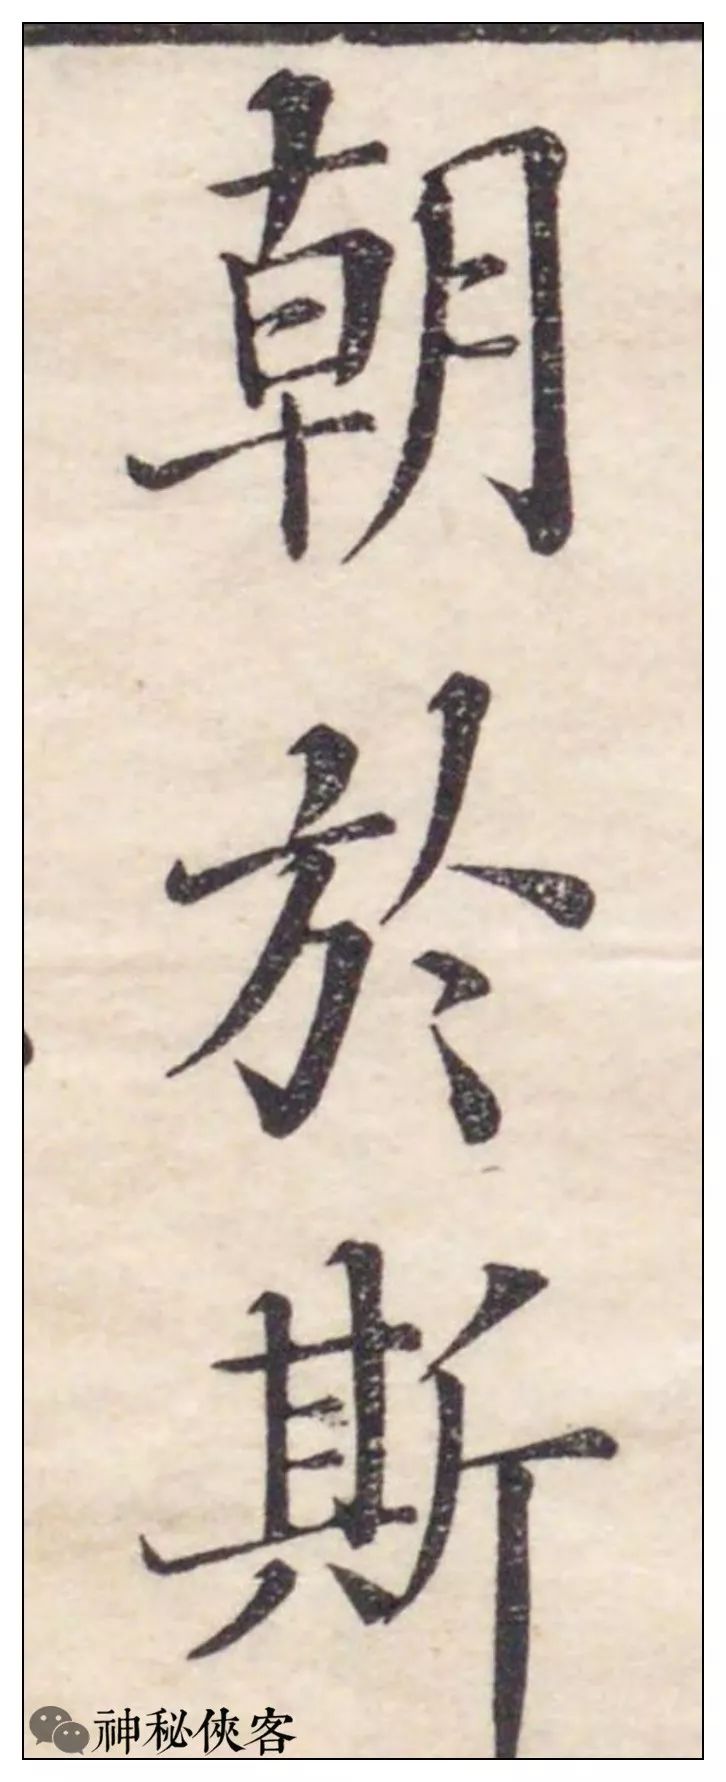 朝於斯
神秘俠客